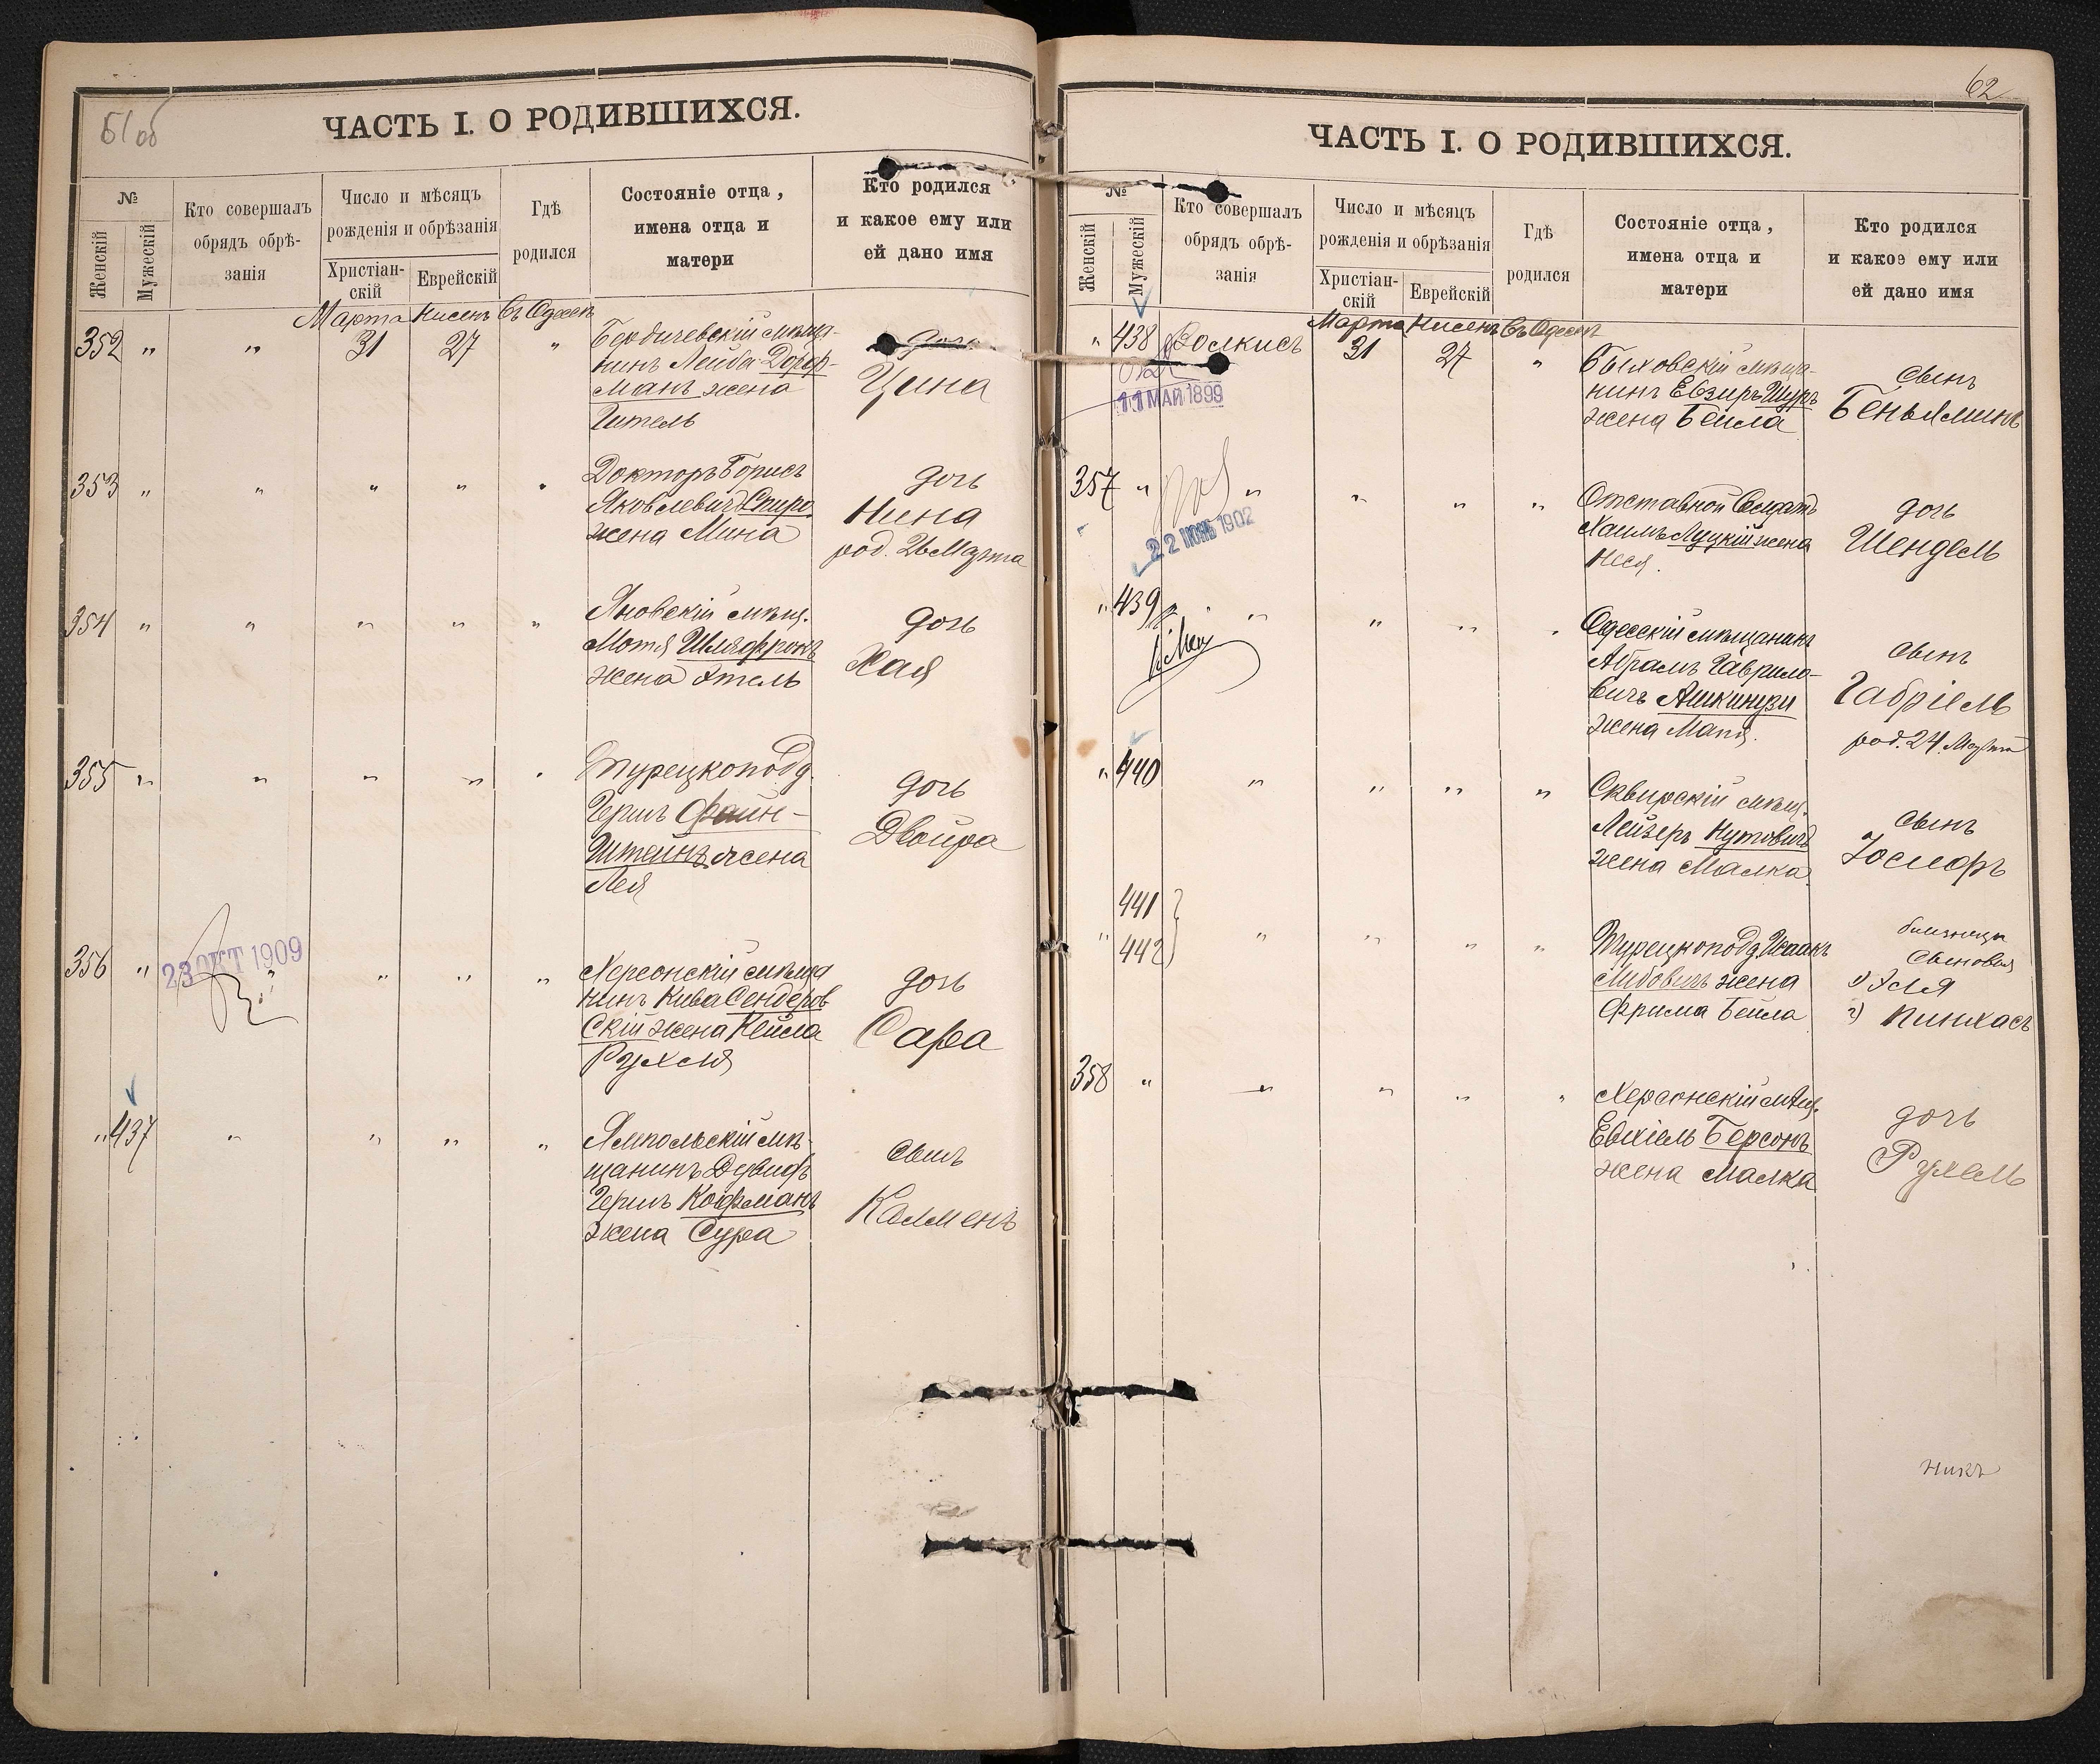 61об
ЧАСТЬ I. О РОДИВШИХСЯ.
№
Женскій
Мужескій
Кто совершалъ
обрядъ обрѣ-
занія
Число и мѣсяцъ
рожденія и обрѣзанія
Христіан-
скій
Еврейскій
Гдѣ
родился
Состояніе отца,
имена отца и
матери
Кто родился
и какое ему или
ей дано имя
Марта Нисенъ Въ Одессѣ
352 " " 31 27 "
Бердичевскій мѣща-
нинъ Лейба Дорф-
манъ жена
Гитель
дочь
Цина
353 " " " " "
Докторъ Борисъ
Яковлевичъ Спиро
жена Мина
дочь
Нина
род. 26 Марта
354 " " " " "
Яновскій мѣщ.
Мотя
жена Этель
дочь
Хая
355 " " " " "
Турецкопод.
Герш Файн-
Штейнъ жена
Лея
дочь
Двойра
356 " 23 ОКТ 1909 " " " "
Херсонскій мѣща
нинъ Кива Сендеров
Скій жена Кейла
Рухля
дочь
Сара
" 437 " " " "
Ямпольскій мѣ-
щанинъ Дувидъ
Гершъ Кофманъ
жена Сура
сынъ
Калменъ
62
ЧАСТЬ I. О РОДИВШИХСЯ.
№
Женскій
Мужескій
Кто совершалъ
обрядъ обрѣ-
занія
Число и мѣсяцъ
рожденія и обрѣзанія
Христіан-
скій
Еврейскій
Гдѣ
родился
Состояніе отца,
имена отца и
матери
Кто родился
и какое ему или
ей дано имя
Марта Нисенъ Въ Одессѣ
" 438 Волкисъ 31 27 "
11 МАЙ 1899
Быховскій мѣща-
нинъ Евзиръ Шуръ
жена Бейла
сынъ
Беньяминъ
357 " " " " "
22 ИЮН 1902
Отставной Солдатъ
Хаимъ Луцкій жена
Неся.
дочь
Шендель
" 439 " " " "
Одесскій мѣщанинъ
Абрамъ Гаврило-
вичъ Ашкинази
жена Маня.
сынъ
Габріель
род. 24 Марта
" 440 " " " "
Сквирскій мѣщ.
Лейзеръ Нутовичъ
жена Малка.
сынъ
Іосифъ
441
" 442 " " " "
Турецкопод. Исаакъ
Либовичъ жена
Фрима Бейла
близнецы
сыновья
1) Эля
2) Пинхасъ
358 " " " " "
Херсонскій мѣщ.
Евхіель Берсонъ
жена Малка
дочь
Рухель